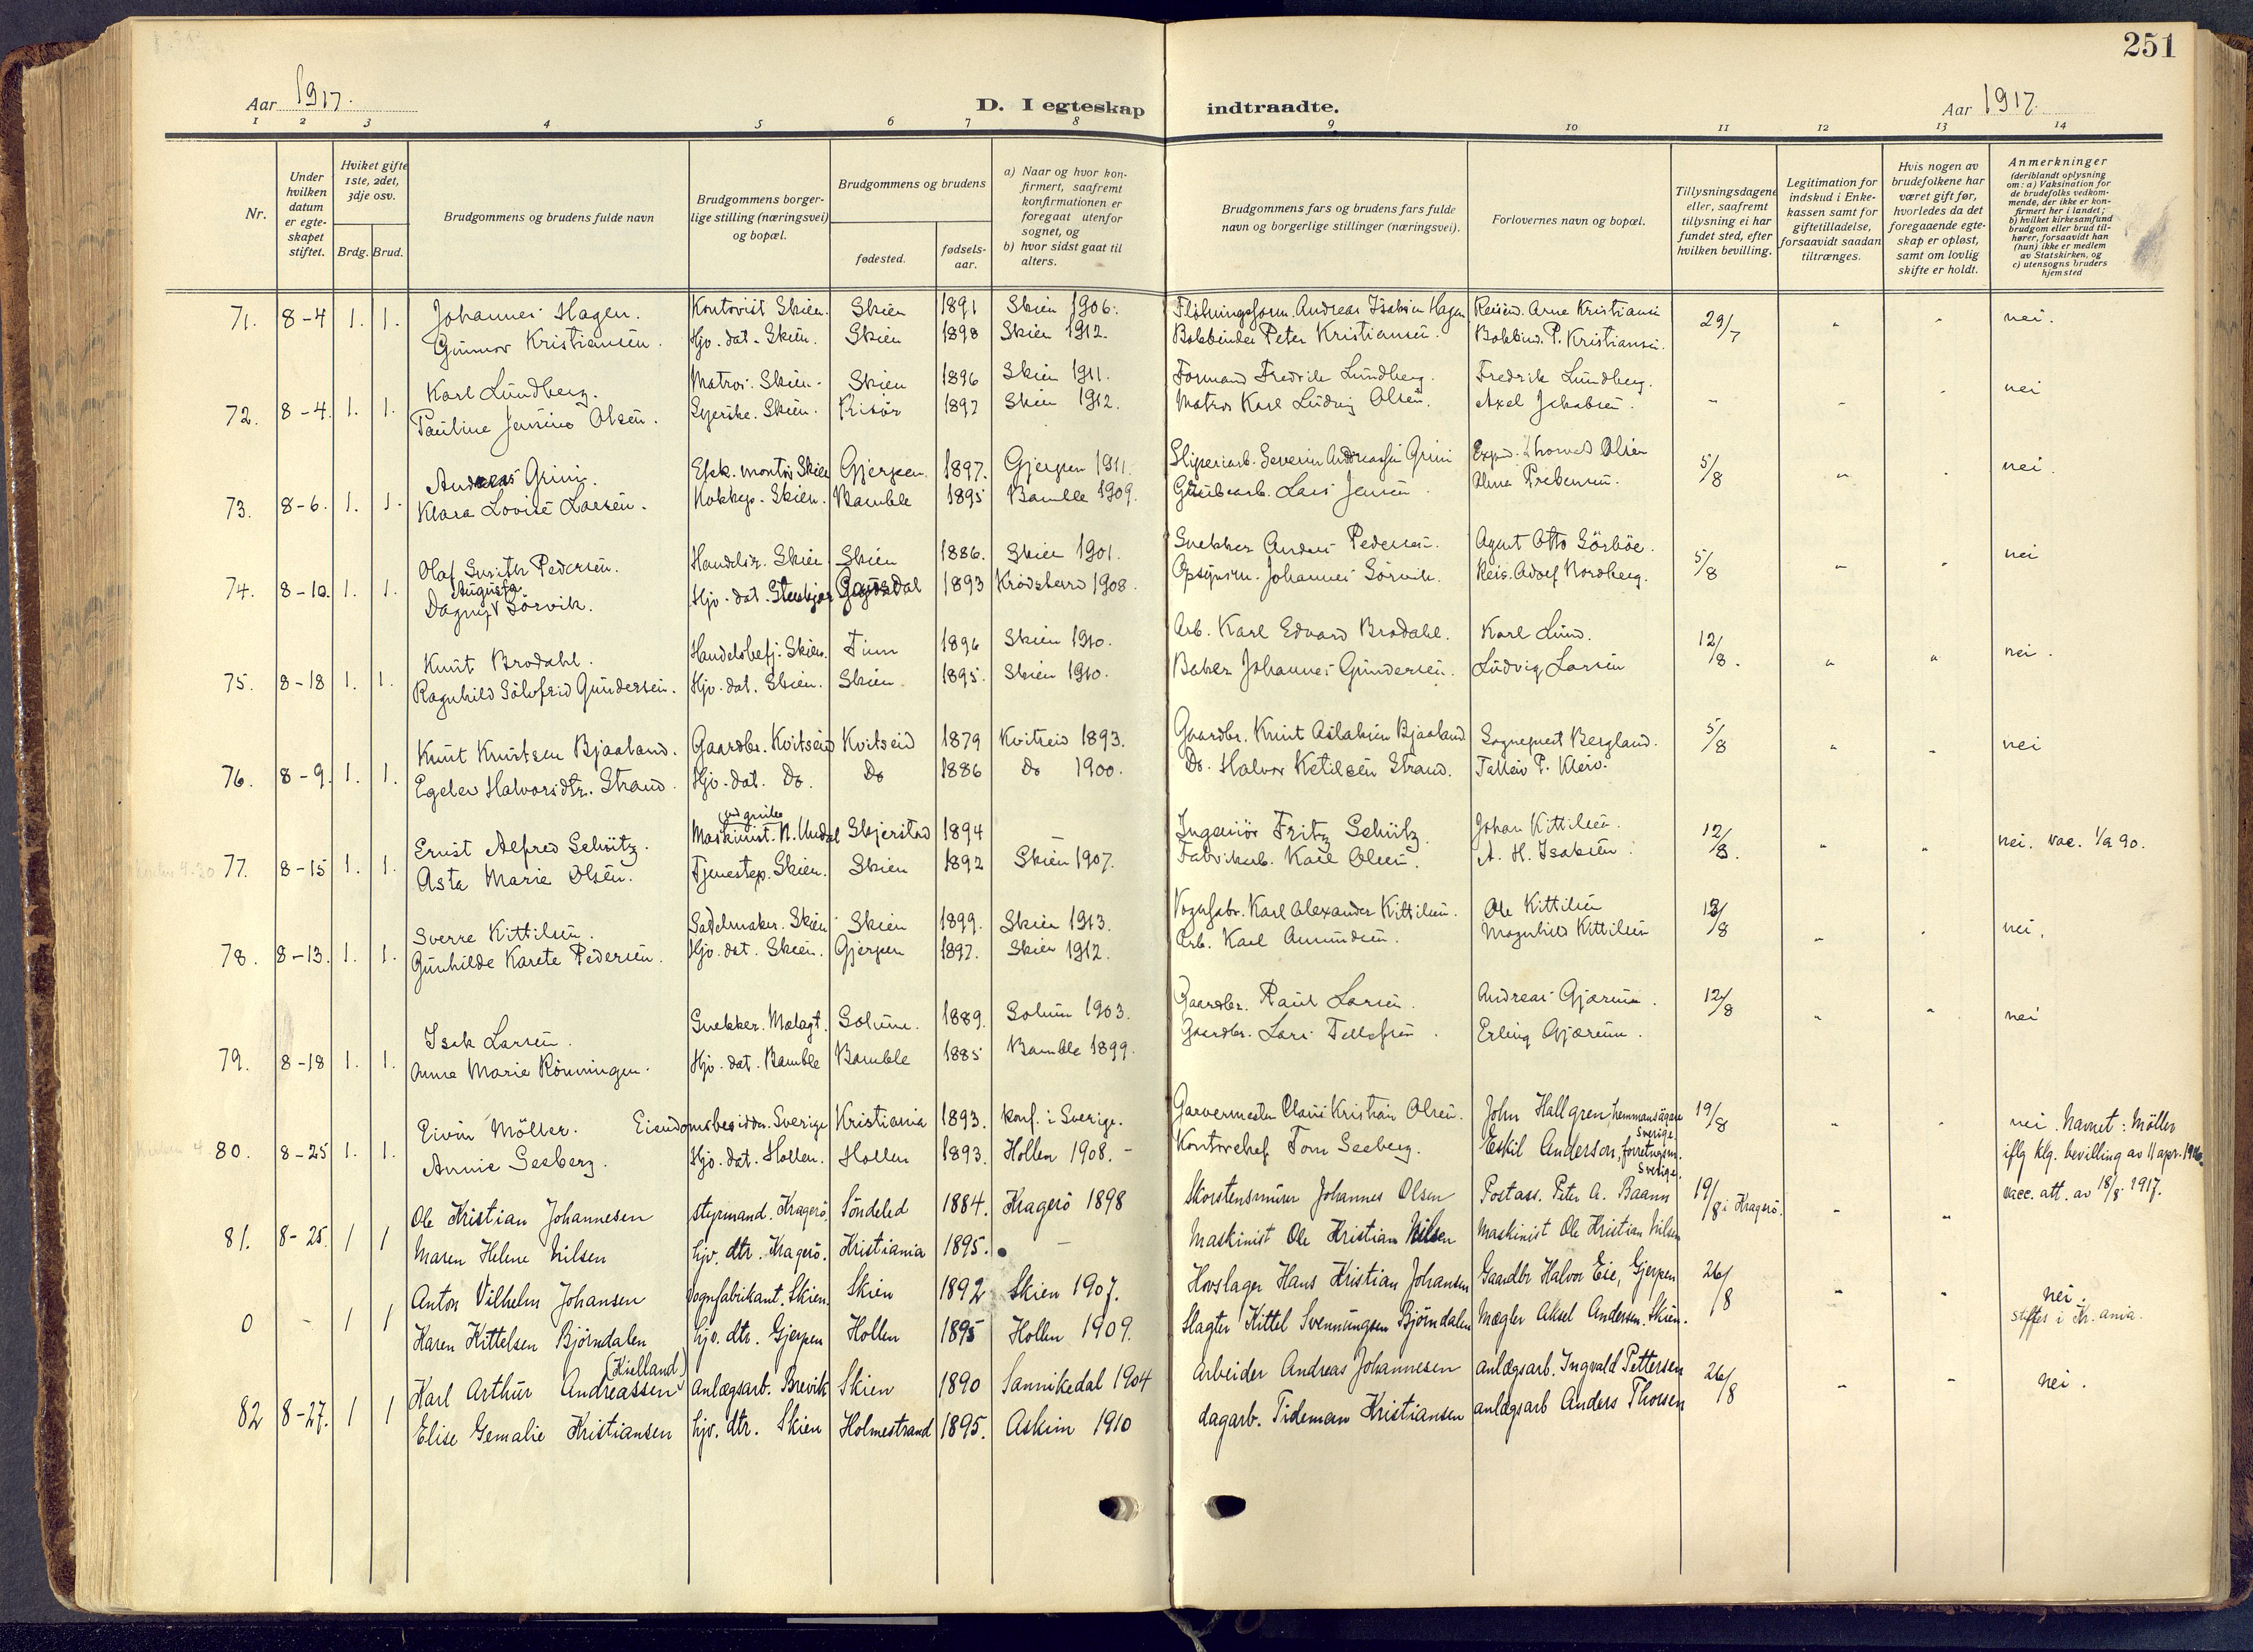 251
Aar 1917.
D. I egteskap indtraadte.
Aar 1917.
1 2 3 4 5 6 7 8 9 10 11 12 13 14
Nr.
Under hvilken datum er egteskapet stiftet.
Hviket gifte 1ste, 2det, 3dje osv.
Brdg. Brud.
Brudgommens og brudens fulde navn
Brudgommens borgerlige stilling (næringsvei) og bopæl.
Brudgommens og brudens
fødested.
fødselsaar.
a) Naar og hvor konfirmert, saafremt konfirmationen er foregaat utenfor sognet, og
b) hvor sidst gaat til alters.
Brudgommens fars og brudens fars fulde navn og borgerlige stillinger (næringsvei).
Forlovernes navn og bopæl.
Tillysningsdagene eller, saafremt tillysning ei har fundet sted, efter hvilken bevilling.
Legitimation for indskud i Enkekassen samt for giftetilladelse, forsaavidt saadan tiltrænges.
Hvis nogen av brudefolkene har været gift før, hvorledes da det foregaaende egteskap er opløst, samt om lovlig skifte er holdt.
Anmerkninger (deriblandt oplysning om: a) Vaksination for de brudefolks vedkommende, der ikke er konfirmert her i landet; b) hvilket kirkesamfund brudgom eller brud tilhører, forsaavidt han (hun) ikke er medlem av Statskirken, og c) utensogns bruders hjemsted
71. 8-4 1. 1. Johannes Hagen. Kontorist Skien. Skien 1891 Skien 1906. Andreas Isaksen Hagen Reisend. Arne Kristiansen 29/7 " " nei.
Gunvor Kristiansen. Hjv. dat. Skien. Skien 1898 Skien 1912. Bokbinder Peter Kristiansen. Bokbind. P. Kristiansen.
72. 8-4. 1. 1. Karl Lundberg. Matros. Skien. Skien 1896 Skien 1911. Formand Fredrik Lundberg. Fredrik Lundberg. " " " nei
Pauline Olsen. Syerske. Skien. Risör 1897 Skien 1912. Matros Karl Ludvig Olsen. Axel Jakobsen.
73. 8-6. 1. 1. Andreas Grini. Elek. montör Skien Gjerpen 1897. Gjerpen 1911. Sliperiarb. Severin Andreassen Grini Exped. Thorvald Olsen 5/8 " " nei.
Klara Lovise Larsen. Kokkep. Skien. Bamble 1895 Bamble 1909. Grubearb. Lars Jensen Alma Prebensen.
74. 8-10. 1. 1. Olaf Pedersen. Handelsr. Skien. Skien 1886. Skien 1901. Snekker Anders Pedersen. Agent Otto Sörböe. 5/8 " " nei
Dagny Augusta Sörvik. Hjv. dat. Stenkjær Gausdal 1893 Krödsherd 1908. Opsynsm. Johannes Sörvik. Reis. Adolf Nordberg.
75. 8-18 1. 1. Knut Brodahl. Handelsbetj. Skien. Tinn 1896 Skien 1910. Arb. Karl Edvard Brodahl. Karl Lund. 12/8. " " nei.
Ragnhild Sölvfrid Gundersen. Hjv. dat. Skien. Skien. 1895. Skien 1910. Baker Johannes Gundersen. Ludvig Larsen
76. 8-9. 1. 1. Knut Knutsen Bjaaland. Gaardbr. Kvitseid Kvitseid 1879 Kvitseid 1893. Gaardbr. Knut Aslaksen Bjaaland. Sogneprest Bergland. 5/8 " " nei
Egelev Halvorsdtr. Strand. Hjv. dat. Do. Do 1886 Do 1900. Do. Halvor Ketilsen Strand. Talleiv P. Kleiv.
77. 8-15 1. 1. Ernst Alfred Schütz. Maskinist. Skjerstad 1894 – Ingeniör Fritz Schütz Johan Kittilsen. 12/8. " " nei. vac. 1/9 90.
Asta Marie Olsen. Tjenestep. Skien. Skien 1892 Skien 1907. Fabrikarb. Karl Olsen. A. H. Isaksen.
78. 8-13. 1. 1. Sverre Kittilsen. Sadelmaker. Skien Skien 1899. Skien 1913. Vognfabr. Karl Alexander Kittilsen. Ole Kittilsen 12/8 " " nei.
Gunhilde Karete Pedersen. Hjv. dat. Skien. Gjerpen 1897. Skien 1912. Arb. Karl Amundsen. Magnhild Kittilsen
79. 8-18 1. 1. Isak Larsen. Snekker. Mælagt. Solum. 1889. Solum 1903. Gaardbr. Paul Larsen. Andreas Gjærum. 12/8 " " nei
Anne Marie Rönningen. Hjv. dat. Bamble Bamble 1885 Bamble 1899. Gaardbr. Lars Tellefsen. Erling Gjærum.
80. 8-25 1. 1. Eivin Möller. Eiendomsbesidder. Sverige Kristiania 1893. konf. i Sverige. Garvermester Claus Kristian Olsen. John Hallgren, hemmansägare Sverige. 19/8 " " nei. Navnet: Möller
Annie Seeberg. Hjv. dat. Hollen. Hollen 1893. Hollen 1908. – Kontorchef Tom Seeberg. Eskil Anderson, forretningsm. Sverige. iflg klg. bevilling av 11 apr. 1916. vacc. att. av 18/8 1917.
81. 8-25. 1 1 Ole Kristian Johannesen styrmand. Kragerö. Söndeled 1884. Kragerö 1898 Skorstensmurer Johannes Olsen Postass. Peter A. Baann 19/8 i Kragerö. " "
Maren Helene Nilsen hjv. dtr. Kragerö. Kristiania 1895. – Maskinist Ole Kristian Nilsen Maskinist Ole Kristian Nilsen
0 - 1 1 Anton Vilhelm Johansen vognfabrikant. Skien. Skien 1892 Skien 1907. Hovslager Hans Kristian Johansen Gaardbr Halvor Eie, Gjerpen 26/8 " " nei.
Karen Kittelsen Björndalen hjv. dtr. Gjerpen Hollen 1895 Hollen 1909. Slagter Kittel Svennungsen Björndalen Mægler Aksel Andersen. Skien. stiftes i Kr.ania.
82 8-27. 1 1 Karl Arthur Andreassen (Kielland) anlægsarb. Brevik Skien 1890 Sannikedal 1904 Arbeider Andreas Johannesen anlægsarb. Ingvald Pettersen 26/8 " " nei.
Elise Gemalie Kristiansen hjv. dtr. Skien Holmestrand 1895. Askim 1910 dagarb. Tideman Kristiansen anlægsarb Anders Thorsen